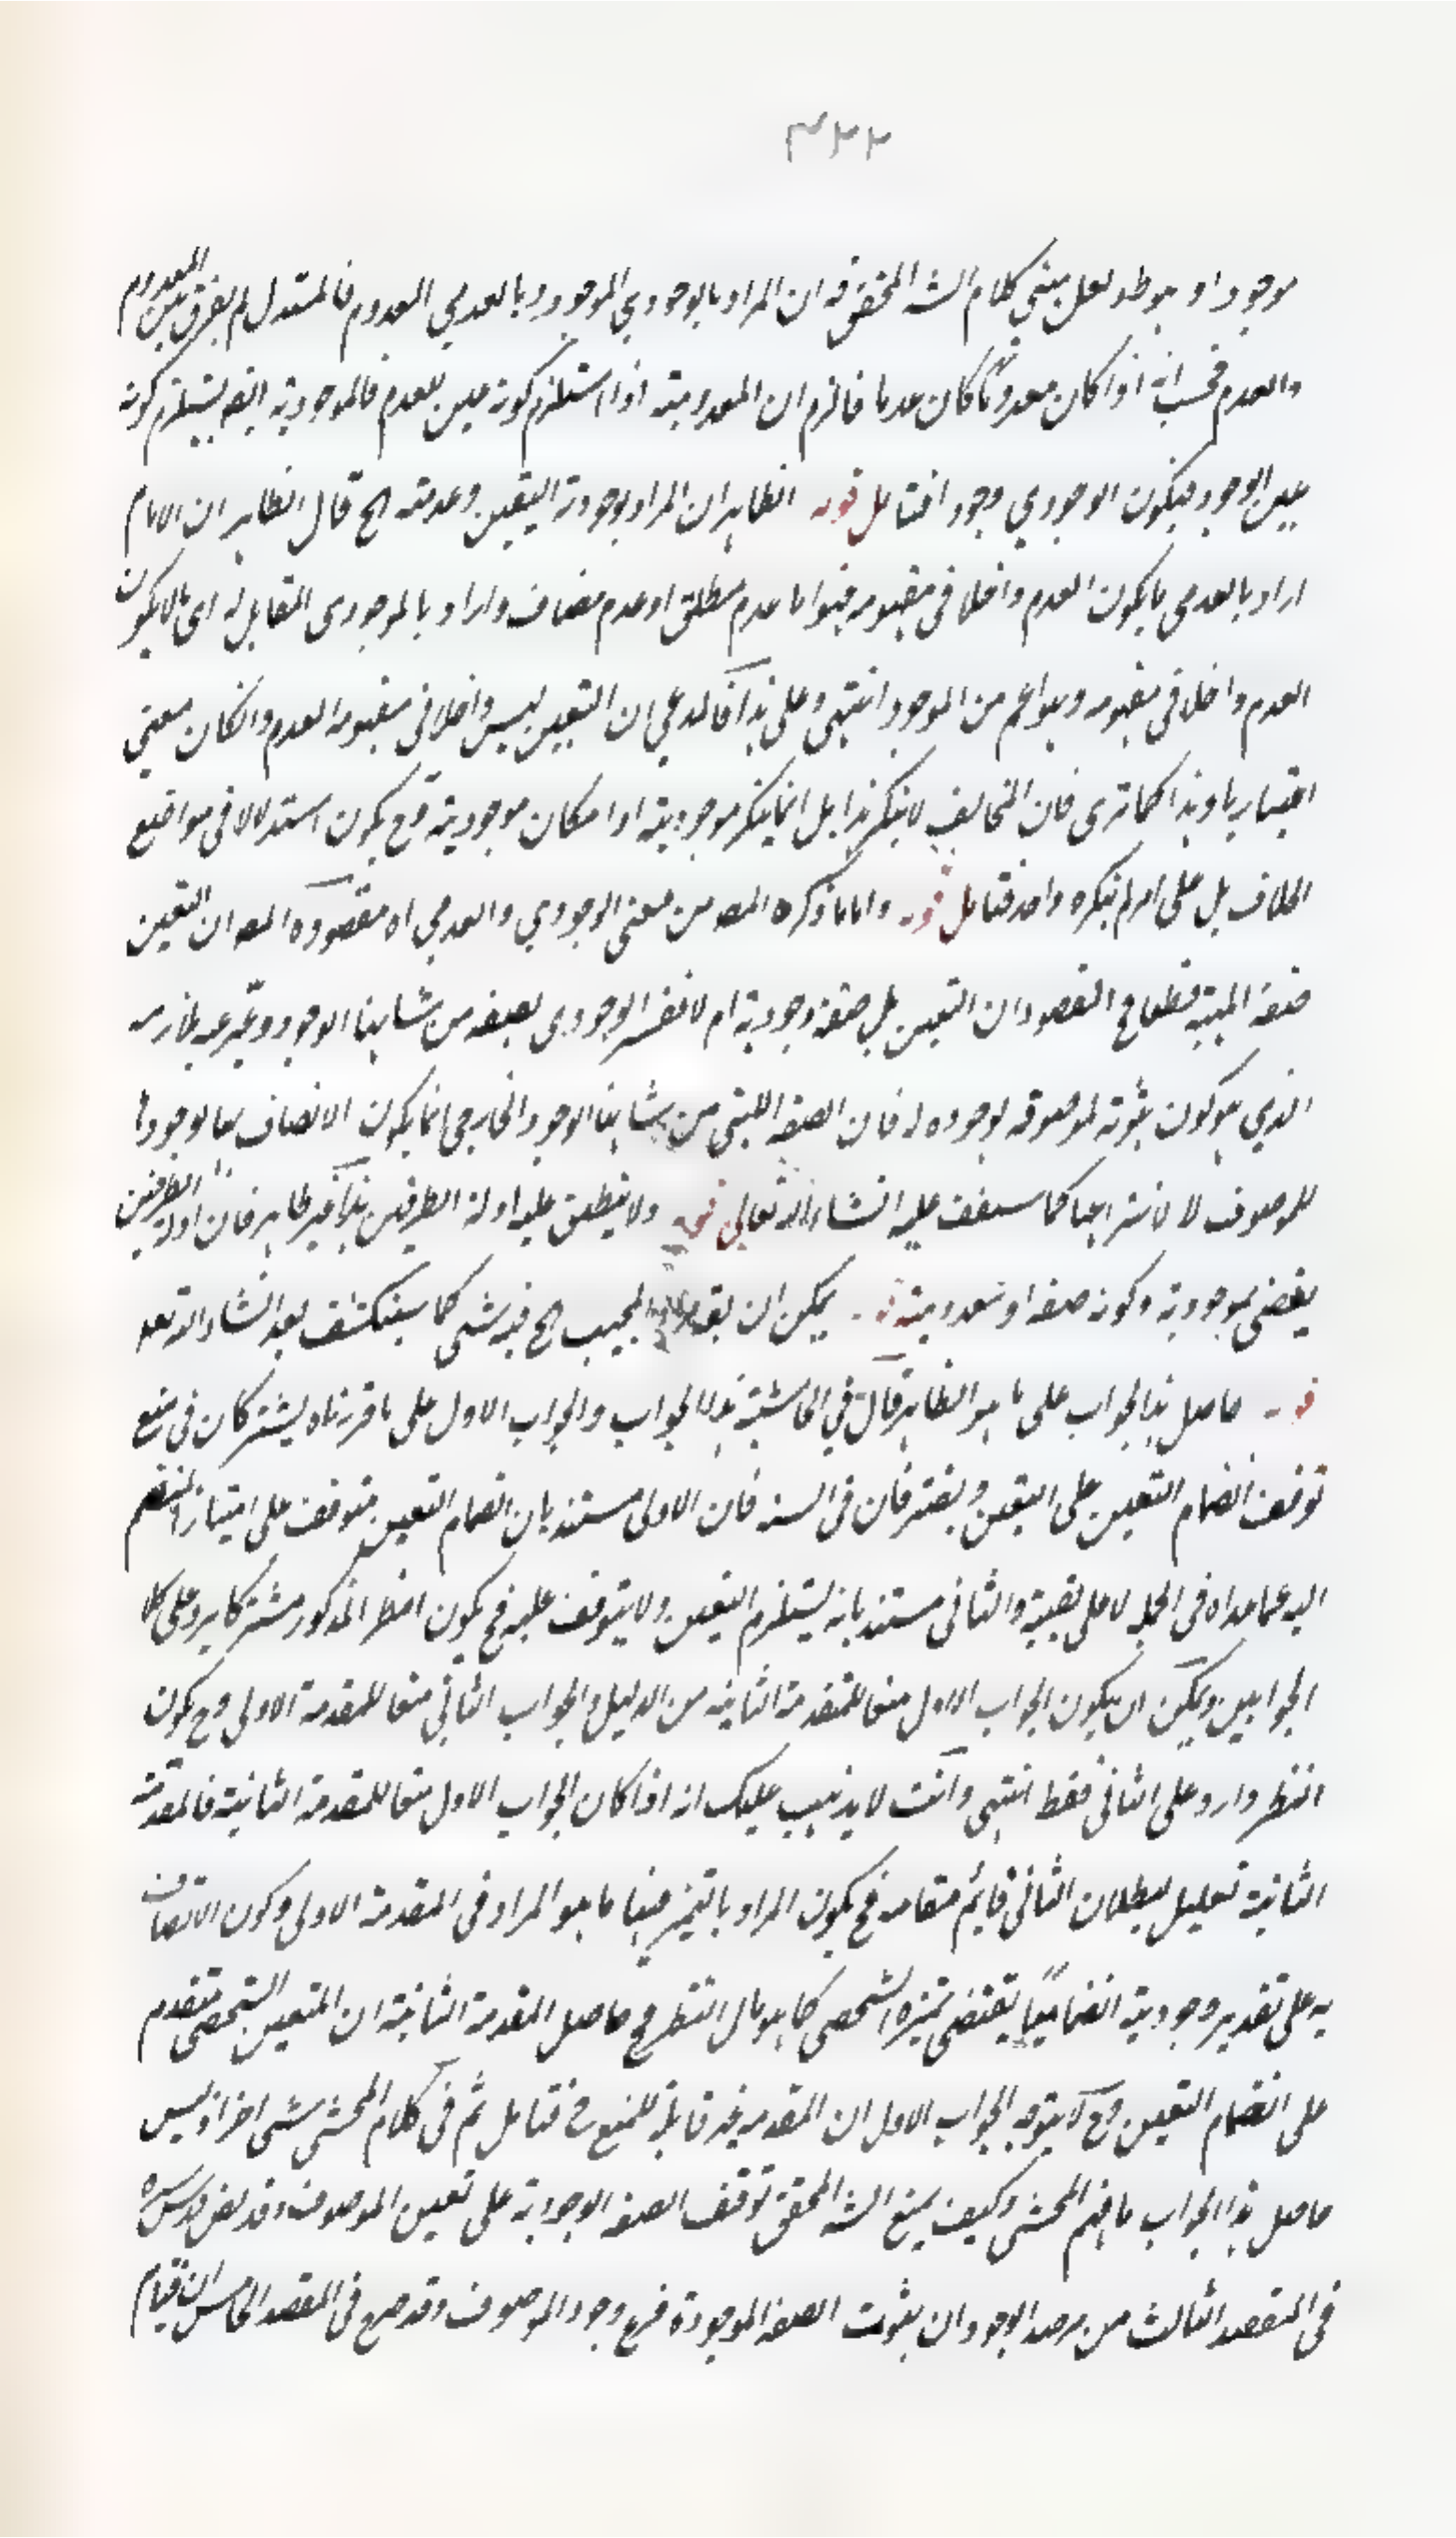 ٣٢٢
موجودا وهو ظ ولعل مبنى كلام الشه المحقق قه ان المراد بالوجودي الموجود وبالعدمي المعدوم فالمستدل لم يفرق بين المعدوم
والعدم فحسب انه اذا كان معدوما كان عدما فالزم ان المعدومية اذا استلزم كونه عين العدم فالموجودية ايضه يستلزم كونه
عين الوجود فيكون الوجودي وجودا فتامل قوله الظاهر ان المراد بوجودية التعين وعدميته الخ قال الظاهر ان الامام
اراد بالعدمي ما يكون العدم داخلا في مفهومه فهو اما عدم مطلق او عدم مضاف واراد بالوجودي المقابل له اي ما لا يكون
العدم داخلا في مفهومه وهو اعم من الموجود انتهى وعلى هذا فالمدعى ان التعين ليس داخلا في مفهومه العدم وانكان معنى
اعتباريا وهذا كما ترى فان المخالف لا ينكر هذا بل انما ينكر موجوديته او امكان موجوديته فح يكون استدلالا في مواضع
الخلاف بل على امر لم ينكره واحد فتامل قوله واما ما ذكره المصه من معنى الوجودي والعدمي اه مقصوده المصه ان التعين
صفة المهية قطعا ح المقصود ان التعين هل صفة وجودية ام لا ففسر الوجودي بصفة من شانها الوجود وعبر عنه بلازمه
الذي هو كون ثبوته لموصوفه لوجوده له فان الصفة اللتي من شانها الوجود الخارجي انما يكون الاتصاف بها لوجودها
للموصوف لا لانتزاعها كما ستقف عليه انشاء الله تعالى قوله ولا ينطبق عليه ادلة الطرفين هذا غير ظاهر فان ادلة الطرفين
يقضى بموجودية وكونه صفة او معدوميته قوله يمكن ان يقه المجيب الخ فيه شي كما سينكشف بعد انشاء الله تعه
قوله حاصل هذا الجواب على ما هو الظاهر قال في الحاشية هذا الجواب والجواب الاول على ما قررناه يشتركان في منع
توقف انضمام التعين على التعين ويفترقان في السند فان الاول مستند بان انضمام التعين متوقف على امتياز المنضم
اليه عما عداه في الجملة لا على تعينه والثاني مستند بانه يستلزم التعين ولا يتوقف عليه فح يكون النظر المذكور مشتركا يرد على كلا
الجوابين ويمكن ان يكون الجواب الاول منعا للمقدمة الثانية من الدليل والجواب الثاني منعا للمقدمة الاولى وح يكون
النظر وارد على الثاني فقط انتهى وانت لا يذهب عليك انه اذا كان الجواب الاول منعا للمقدمة الثانية فالمقدمة
الثانية تعليل لبطلان الثاني قايم مقامه فح يكون المراد بالتميز فيها ما هو المراد في المقدمة الاولى وكون الاتصاف
به على تقدير وجودية انضماميا يقتضى تميزه الشخصي كما هو مال النظر فح حاصل المقدمة الثانية ان المتعين الشخصي متقدم
على انضمام التعين وح لا يتوجه الجواب الاول ان المقدمة غير قابلة للمنع ح فتامل ثم في كلام المحشي شي اخر اذ ليس
حاصل هذا الجواب ما فهم المحشي وكيف يمنع الشه المحقق توقف الصفة الوجودية على تعين الموصوف وقد نص قدس سره
في المقصد الثالث من مرصد الوجود ان ثبوت الصفة الموجودة فرع وجود الموصوف وقد صرح في المقصد الخامس ان قيام